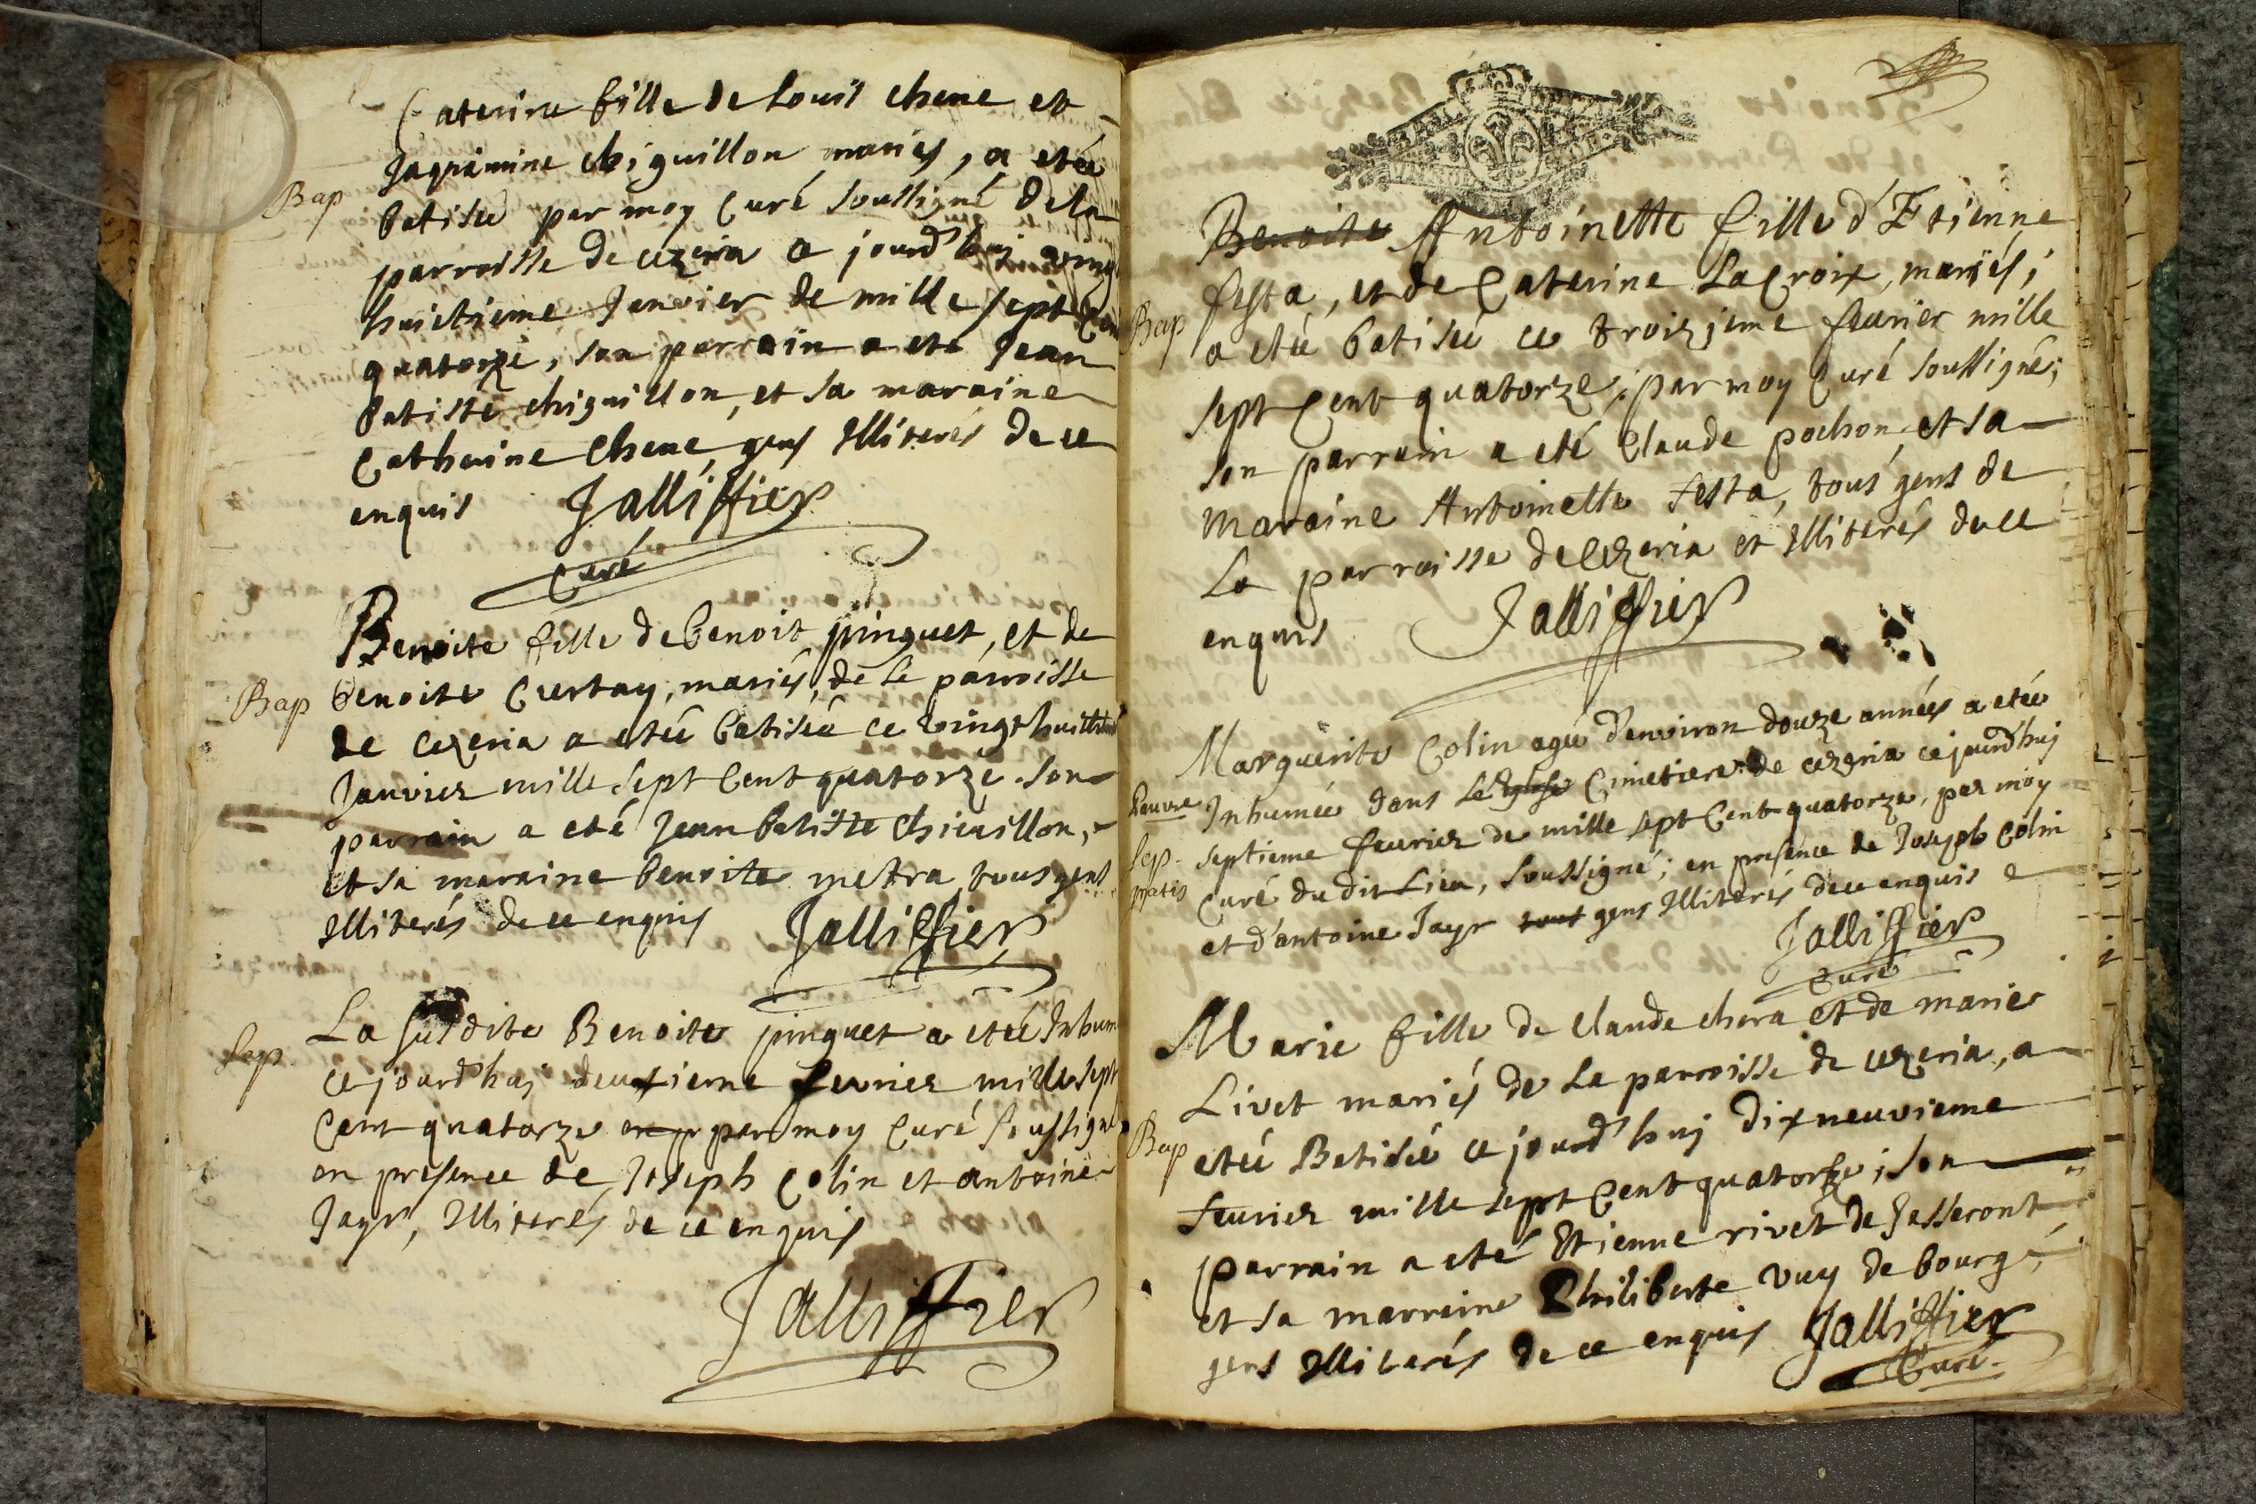 Caterine fille de Louis chene et
Jaqueimine chiguillon mariés, a etée
Bap
batisée par moy Curé soussigné dela
parroisse de cezeria a jourd'huj vingt
huictieme Janvier de mille sept Cent
quatorze, son parrain a ete Jean
batiste chiguillon, et sa maraine
Catherine Chene gens Illiterés de ce
enquis Jalliffier
Curé
Benoite fille de benoit pinguet, et de
Bap
benoite Curtay, mariés, de la parroisse
de cezeria a etée batisée ce vingt huictieme
Janvier mille sept Cent quatorze. son
parrain a eté Jean batiste Chicuillon,
et sa maraine benoite metra tous gens
Illiterés de ce enquis Jalliffier
Sep.
La susdite Benoite pinguet a etée Inhum
ce jourd'huj deuxieme fevrier mille sept
Cent quatorze par moy Curé soussigné
en presence de Joseph Colin et antoine
Jayr, Illiterés de ce enquis
Jalliffier
Benoite Antoinette fille d'Etienne
festa, et de Caterine LaCroix, mariés,
Bap
a etée batisée ce troizieme feurier mille
sept Cent quatorze, par moy Curé soussigné;
son parrain a eté Claude pochon et sa
maraine Antoinette festa, tous gens de
La parroisse de Cezeria et Illiterés de ce
enquis Jalliffier
Marguerite Colin agée d'environ douze années a etée
Pauvre
Inhumée dans Le Eglise Cimetiere de cezeria cejourd'huj
Sep.
gratis
septieme feurier de mille sept Cent quatorze, par moy
Curé du dit Lieu, soussigné; en presence de Joseph Colin
et d'antoine Jayr tout gens Illiterés de ce enquis
Jalliffier
Curé
Marie fille de Claude chera et de marie
Livet mariés de La parroisse de cezeria, a
Bap
etée Batisée ce jourd'huj dixneuvieme
feurier mille sept Cent quatorze; son
parrain a eté Etienne rivet de Jasseront
et sa marreine Philiberte vuy de bourg,
gens Illiterés de ce enquis Jalliffier
Curé.